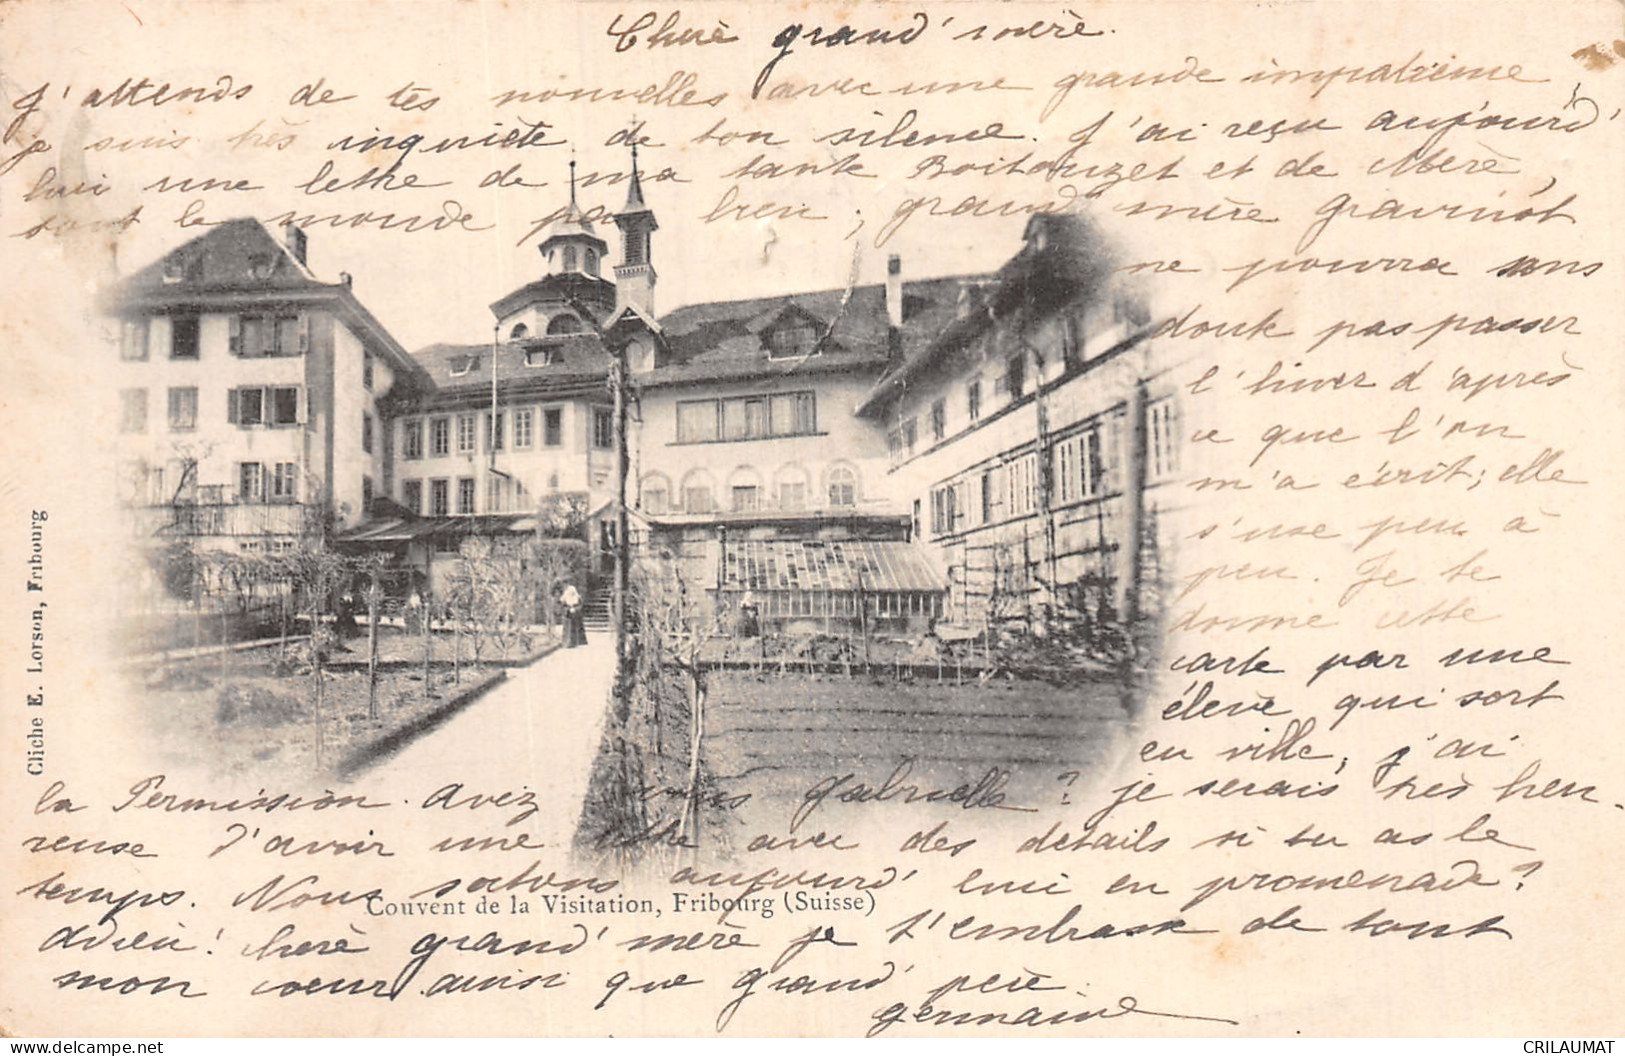 Cherè grand' mère.
J'attends de tes nouvelles avec une grande impatience,
je suis très inquiète de ton silence. J'ai reçu aujourd'
hui une lettre de ma tante Boitouzet et de Mère,
tout le monde va bien; grand' mère Gravinot
ne pourra sans
doute pas passer
l'hiver d'après
ce que l'on
m'a écrit; elle
s'use peu à
peu. Je te
donne cette
carte par une
élève qui sort
en ville, j'ai
la Permission. Avez vous Gabrielle? je serais très heu-
reuse d'avoir une lettre avec des détails si tu as le
temps. Nous sortons aujourd'hui en promenade?
Adieu! cherè grand' mère je t'embrasse de tout
mon cœur ainsi que grand' père.
Germaine
Couvent de la Visitation, Fribourg (Suisse)
Cliche E. Lorson, Fribourg
delcampe.net
CRILAUMAT